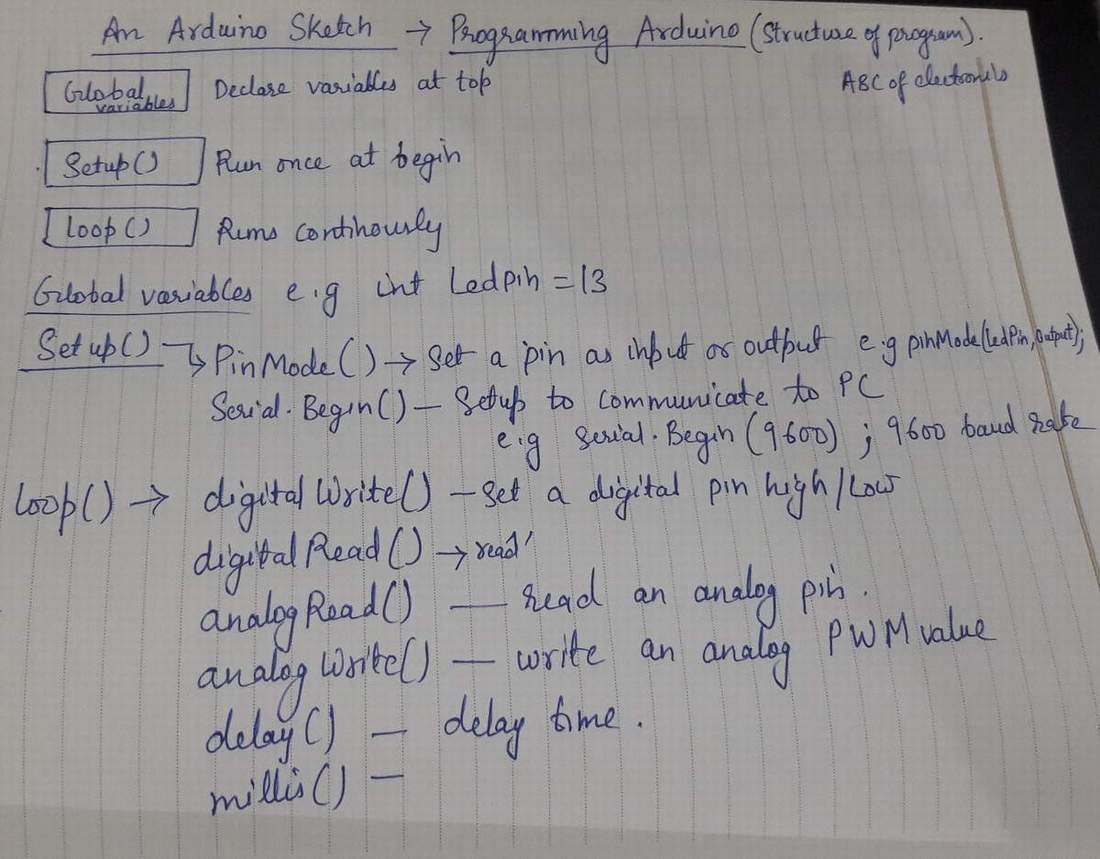 An Arduino Sketch → Programming Arduino (Structure of program).
ABC of electronics
Global variables Declare variables at top
Setup() Run once at begin
loop() Runs continously
Global variables e.g int LedPin = 13
Setup() → PinMode() → Set a pin as input or output e.g pinMode(LedPin, Output);
Serial.Begin() – Setup to communicate to PC
e.g Serial.Begin (9600) ; 9600 baud rate
loop() → digitalWrite() – Set a digital pin high/Low
digitalRead() → read'
analogRead() — read an analog pin.
analogWrite() — write an analog PWM value
delay() — delay time.
millis() —